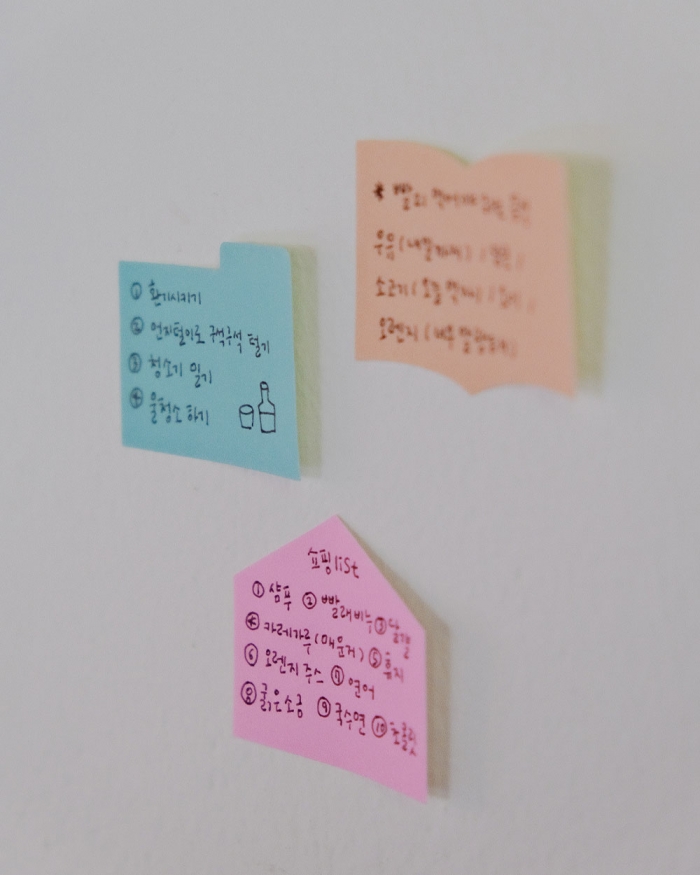 ① 환기시키기
② 먼지털이로 구석구석 털기
③ 청소기 밀기
④ 물청소 하기
* 빨리 먹어야
우유 (내일까지)
소고기 (오늘
오렌지 (
쇼핑 list
① 샴푸 ② 빨래비누 ③ 달걀
④ 카레가루 (매운거) ⑤ 휴지
⑥ 오렌지 주스 ⑦ 연어
⑧ 굵은소금 ⑨ 국수면 ⑩ 초콜릿